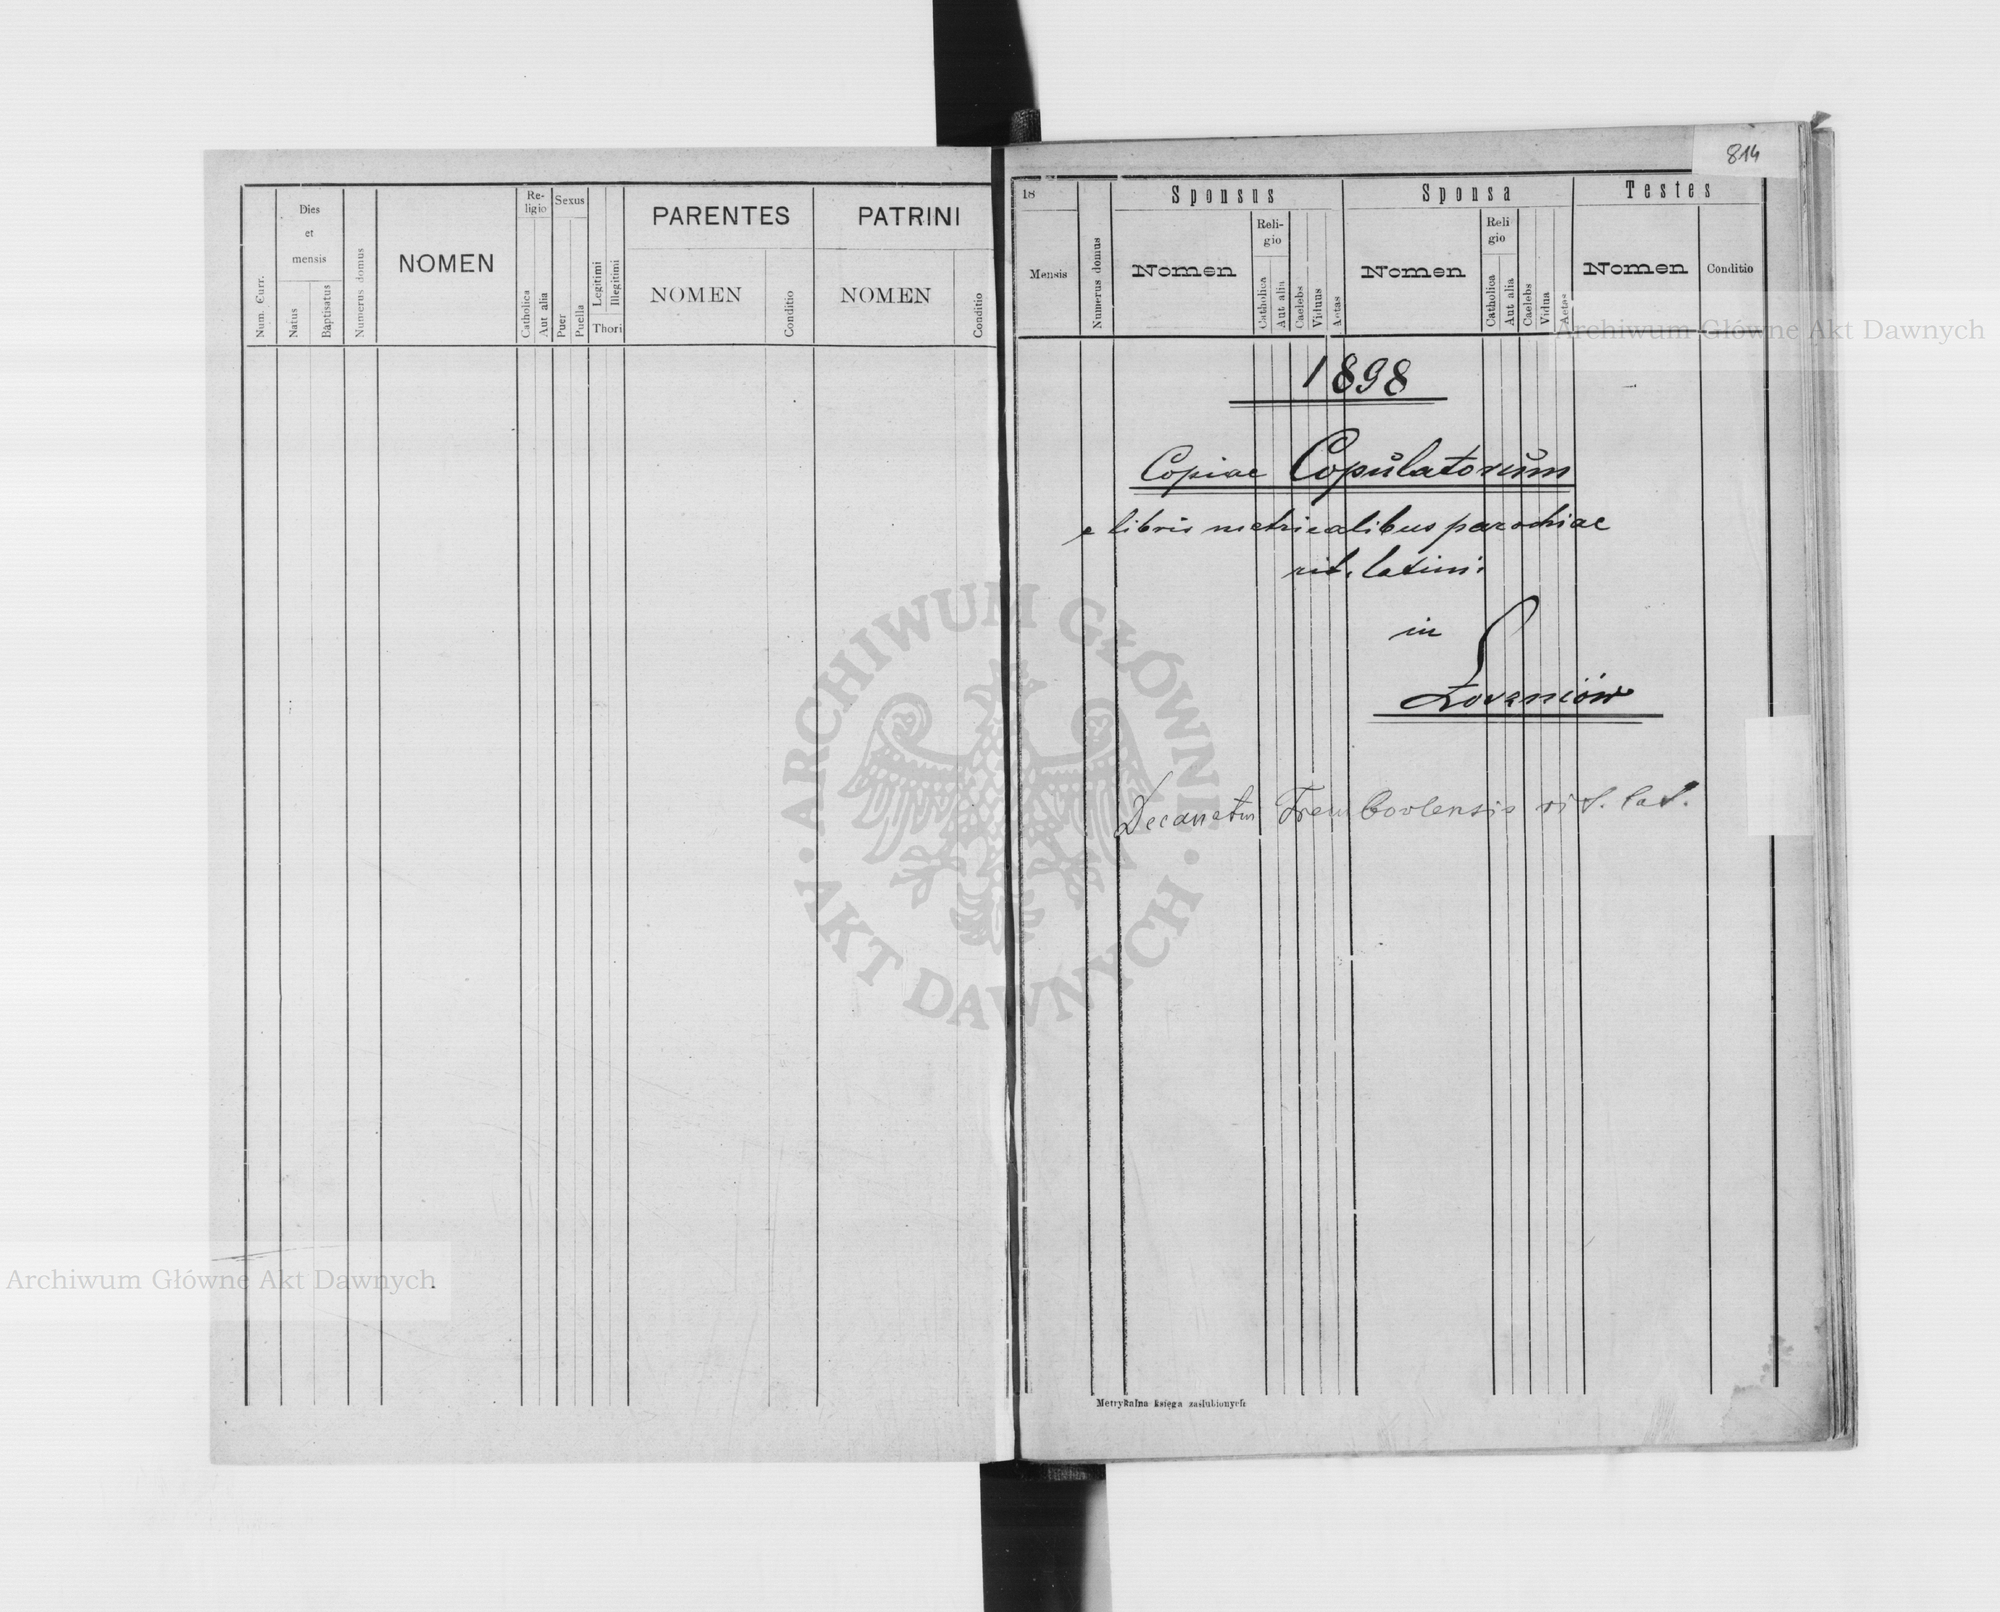 Num. Curr.
Dies
et
mensis
Natus
Baptisatus
Numerus domus
NOMEN
Re-
ligio
Catholica
Aut alia
Sexus
Puer
Puella
Legitimi
Illegitimi
Thori
PARENTES
NOMEN
Conditio
PATRINI
NOMEN
Conditio
814
18
Mensis
Numerus domus
Sponsus
Nomen
Reli-
gio
Catholica
Aut alia
Caelebs
Viduus
Aetas
Sponsa
Nomen
Reli
gio
Catholica
Aut alia
Caelebs
Vidua
Aetas
Testes
Nomen
Conditio
1898
Copiae Copulatorum
e libris metricalibus parochiae
rit. latini:
in
Decanatus Trembovlensis rit. lat.
Metrykalna księga zaślubionych
Archiwum Główne Akt Dawnych
Archiwum Główne Akt Dawnych
ARCHIWUM GŁÓWNE
AKT DAWNYCH